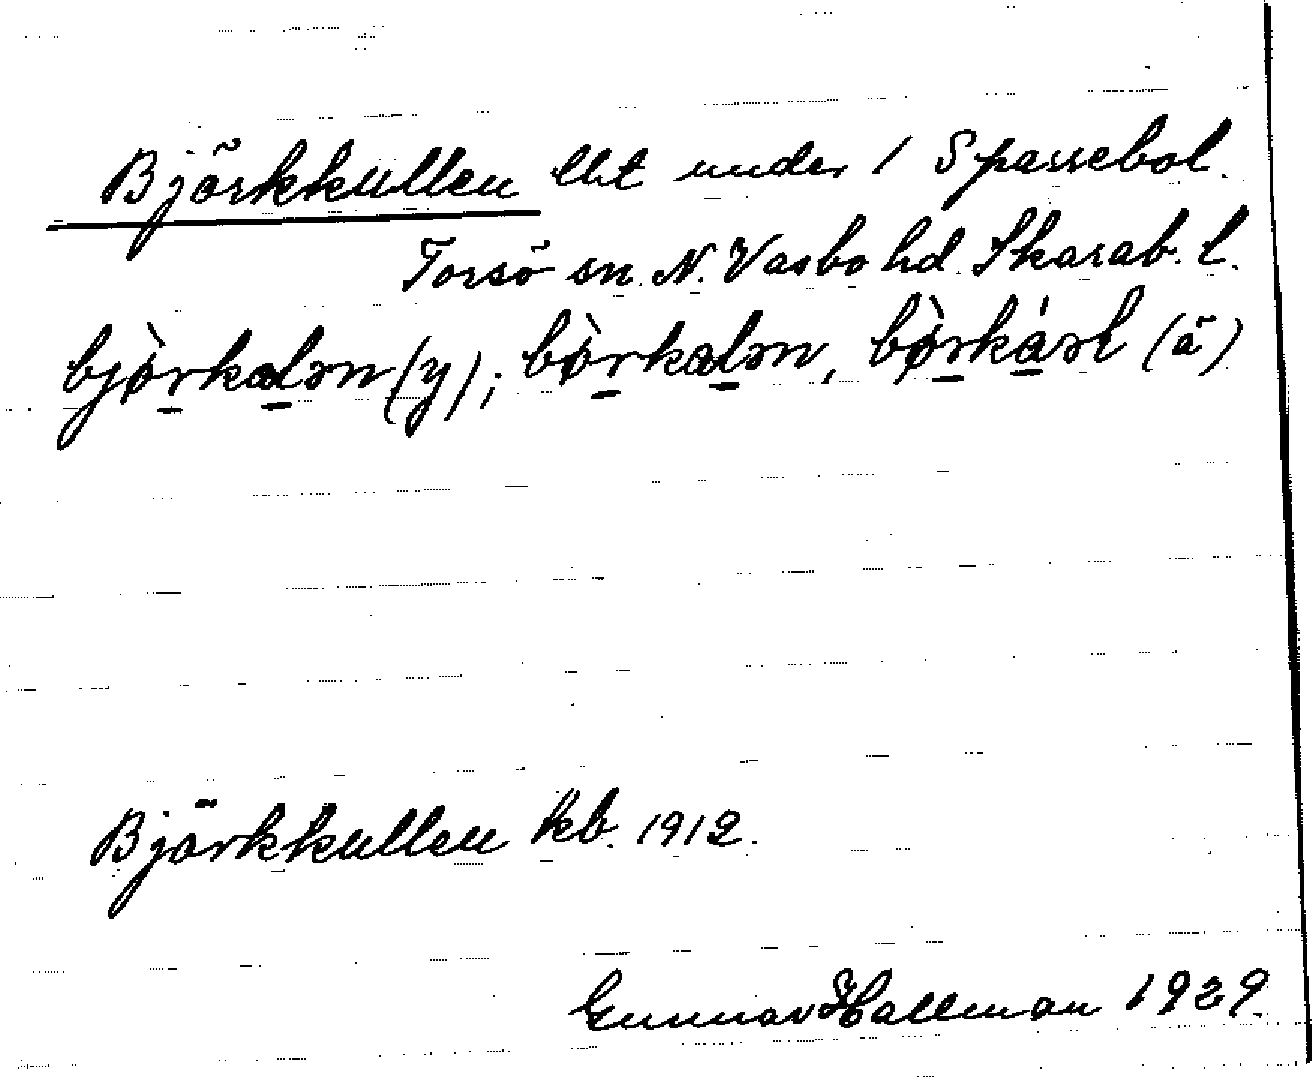 Björkkullen lht under 1 Sparrebol.
Torsö sn. N. Vadsbo hd. Skarab. l.
bjø̀rkalən (y); bø̀rkalən, bø̀rkáəl (ä)
Björkkullen kb. 1912.
Gunnar Hallman 1929.